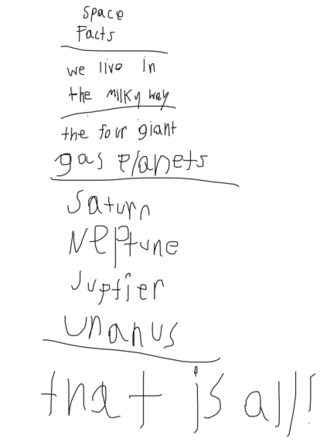 space
Facts
we live in
the milky way
the four giant
gas planets
Saturn
Neptune
Juptier
Unanus
that is all!